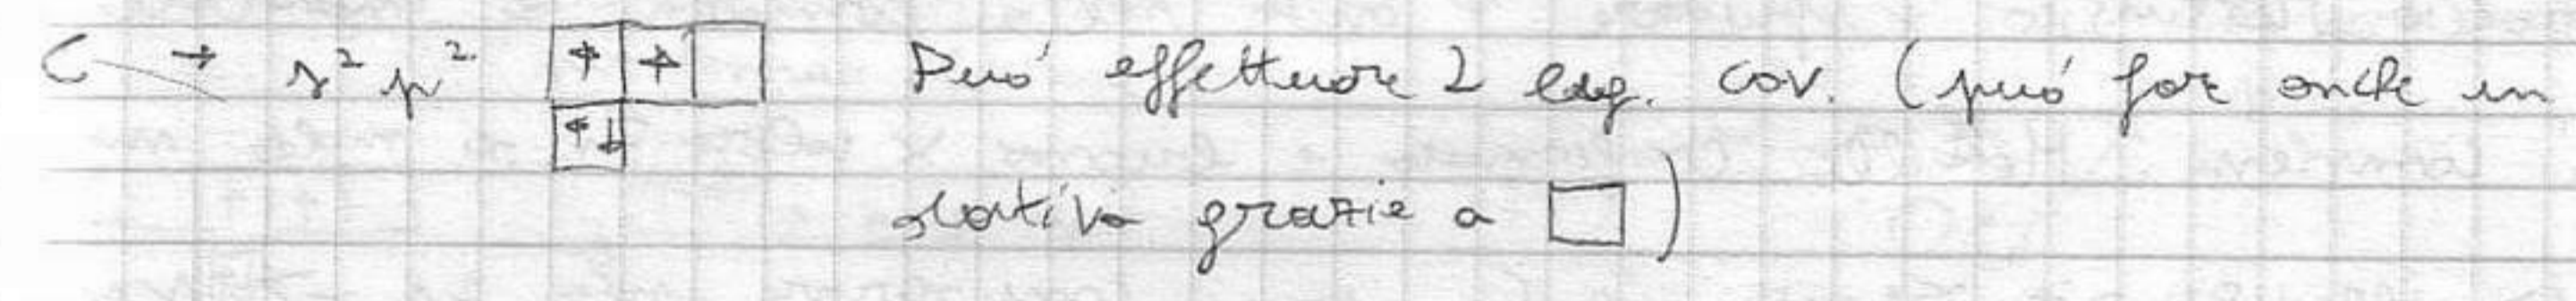 C → s² p² ↑ ↑ Può effettuare 2 leg. cov. (può far anche un
↑↓
dativo grazie a □)